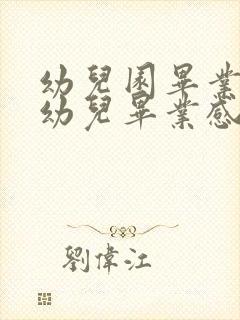 幼兒園畢業
幼兒畢業感
劉偉江